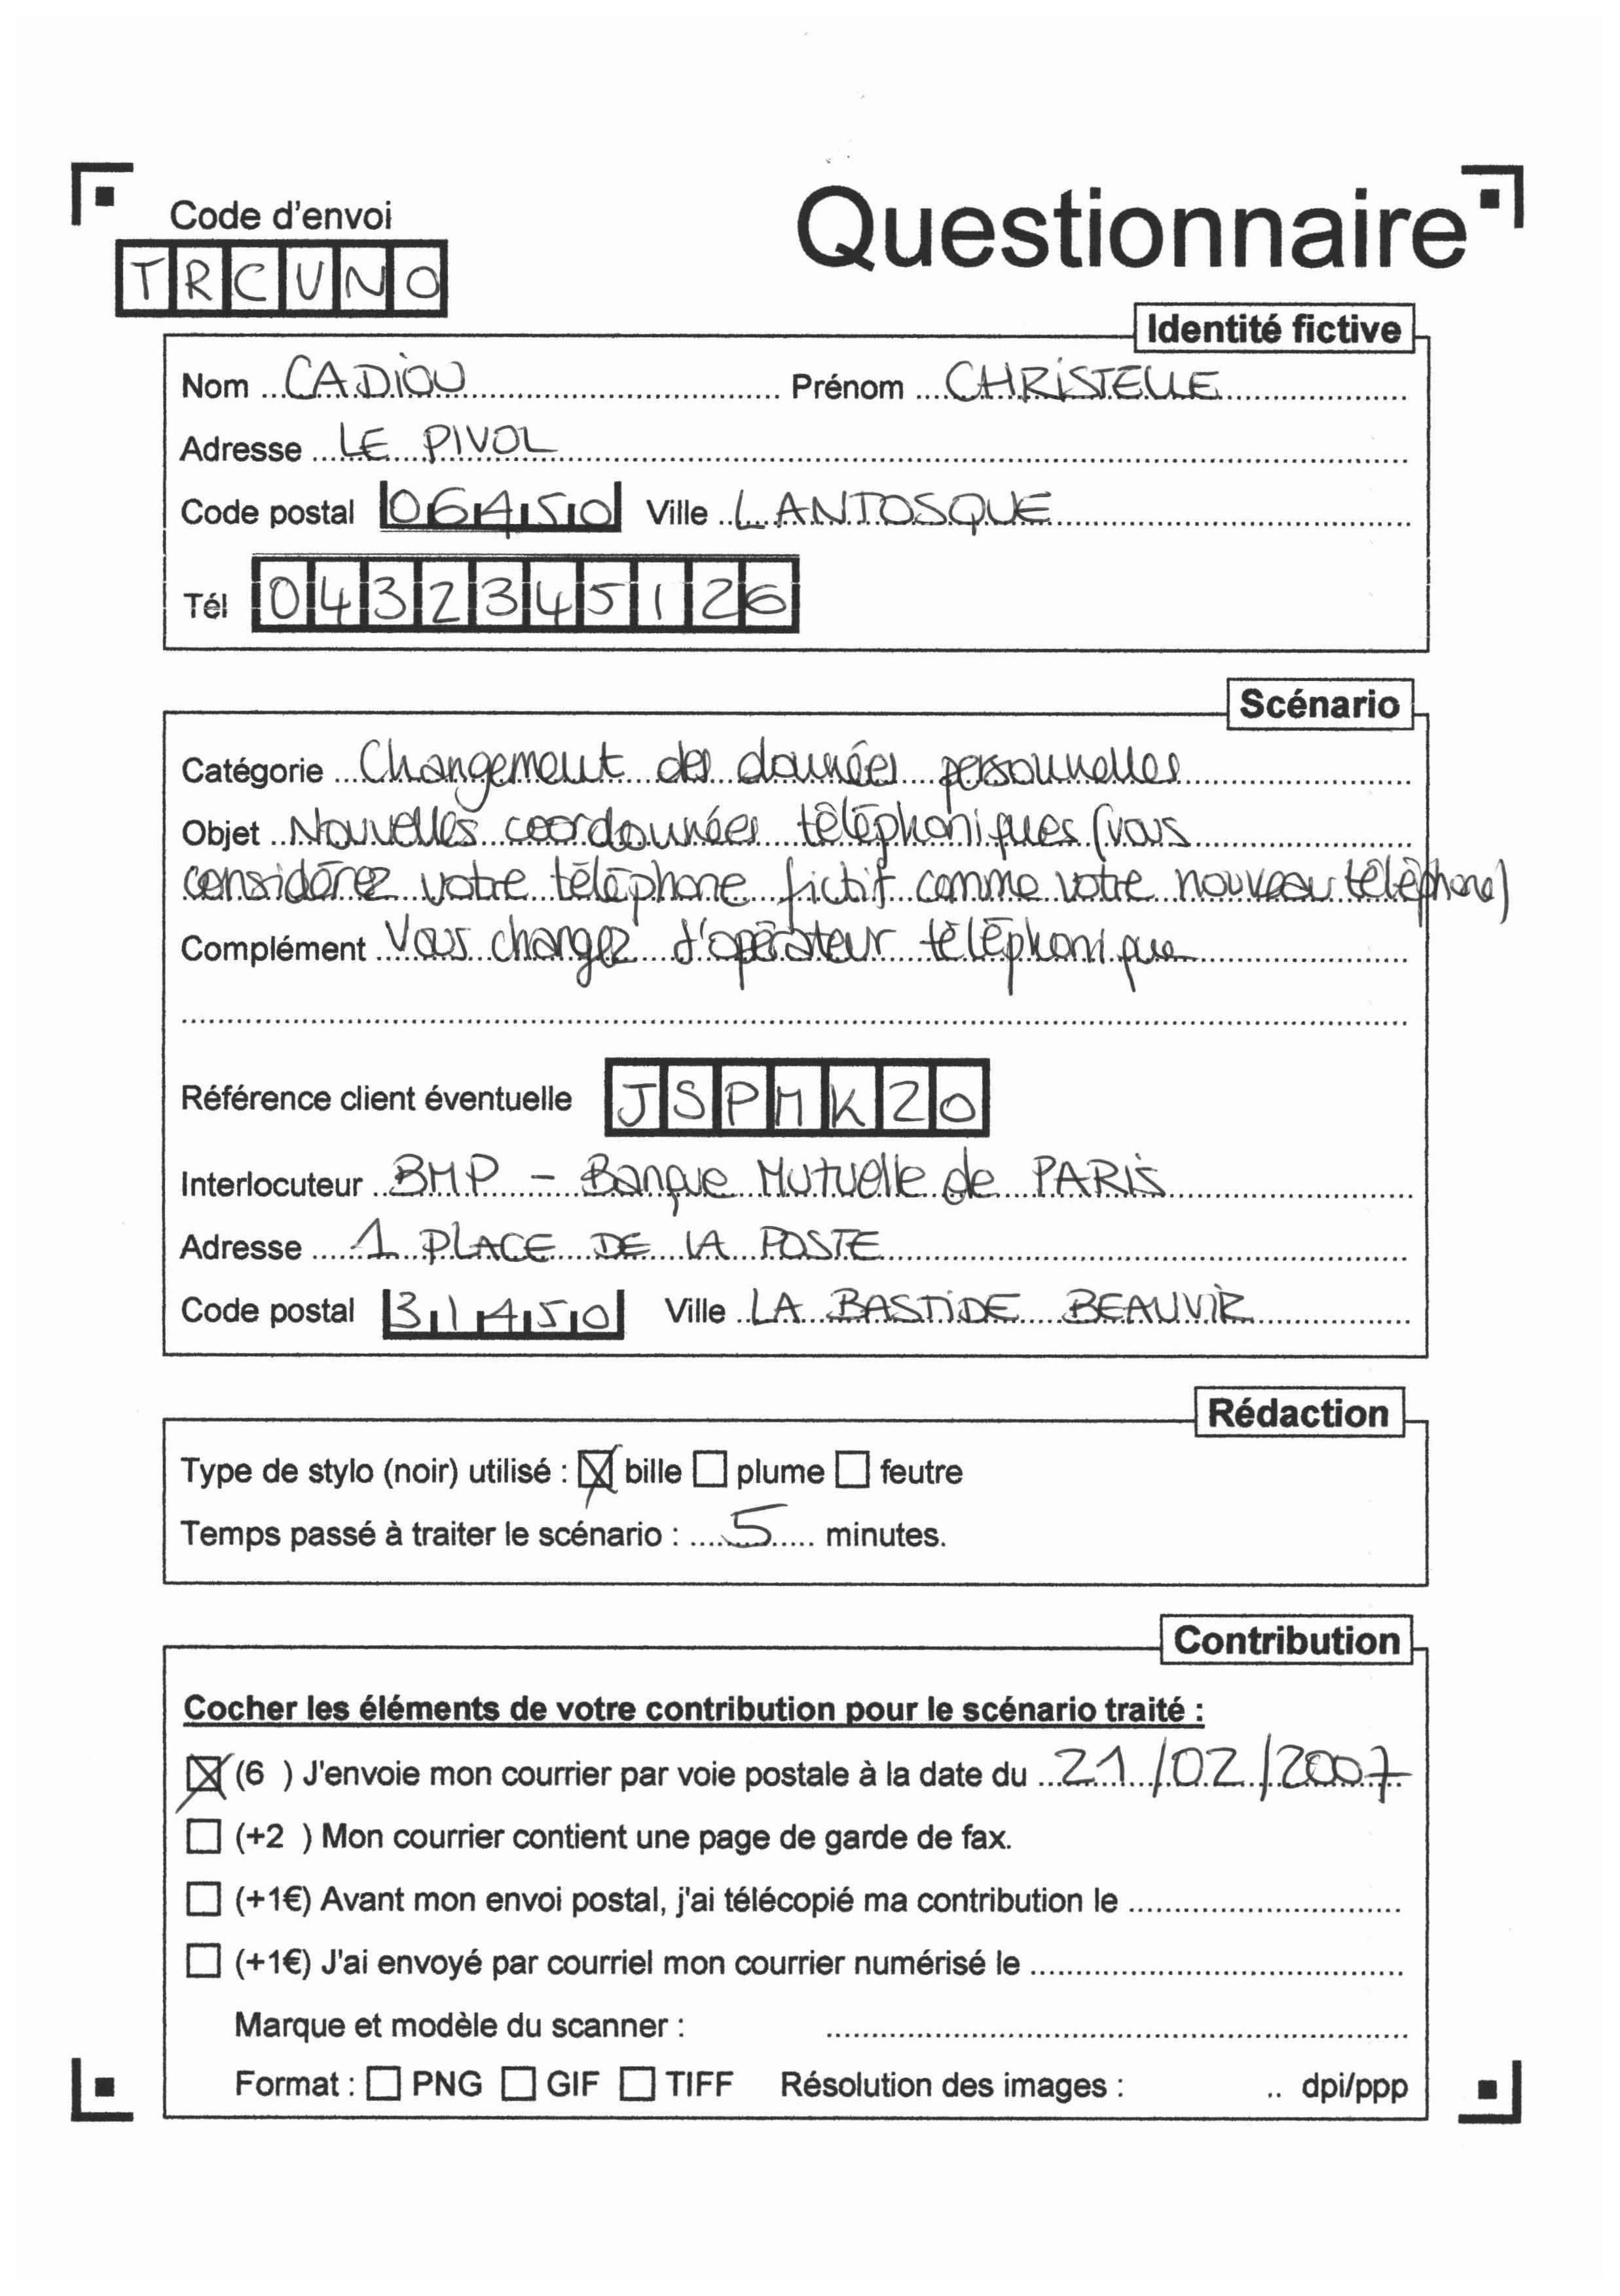 Code d'envoi
Questionnaire
TRCUNO
Identité fictive
Nom CADIOU Prénom CHRISTELLE
Adresse LE PIVOL
Code postal 06450 Ville LANTOSQUE
Tél 0432345126
Scénario
Catégorie Changement des données personnelles
Objet Nouvelles coordonnées téléphoniques (vous
considérez votre téléphone fictif comme votre nouveau téléphone)
Complément Vous changez d'opérateur téléphonique
Référence client éventuelle JSPMK20
Interlocuteur BMP - Banque Mutuelle de PARIS
Adresse 1 PLACE DE LA POSTE
Code postal 31450 Ville LA BASTIDE BEAUVIR
Rédaction
Type de stylo (noir) utilisé : ☒ bille ☐ plume ☐ feutre
Temps passé à traiter le scénario : 5 minutes.
Contribution
Cocher les éléments de votre contribution pour le scénario traité :
☒ (6 ) J'envoie mon courrier par voie postale à la date du 21/02/2007
☐ (+2 ) Mon courrier contient une page de garde de fax.
☐ (+1€) Avant mon envoi postal, j'ai télécopié ma contribution le
☐ (+1€) J'ai envoyé par courriel mon courrier numérisé le
Marque et modèle du scanner :
Format : ☐ PNG ☐ GIF ☐ TIFF Résolution des images : .. dpi/ppp